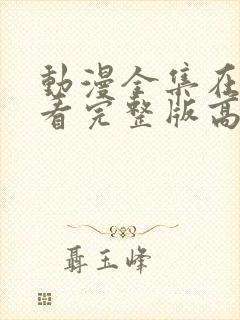 動漫全集在
看完整版高
聶玉峰